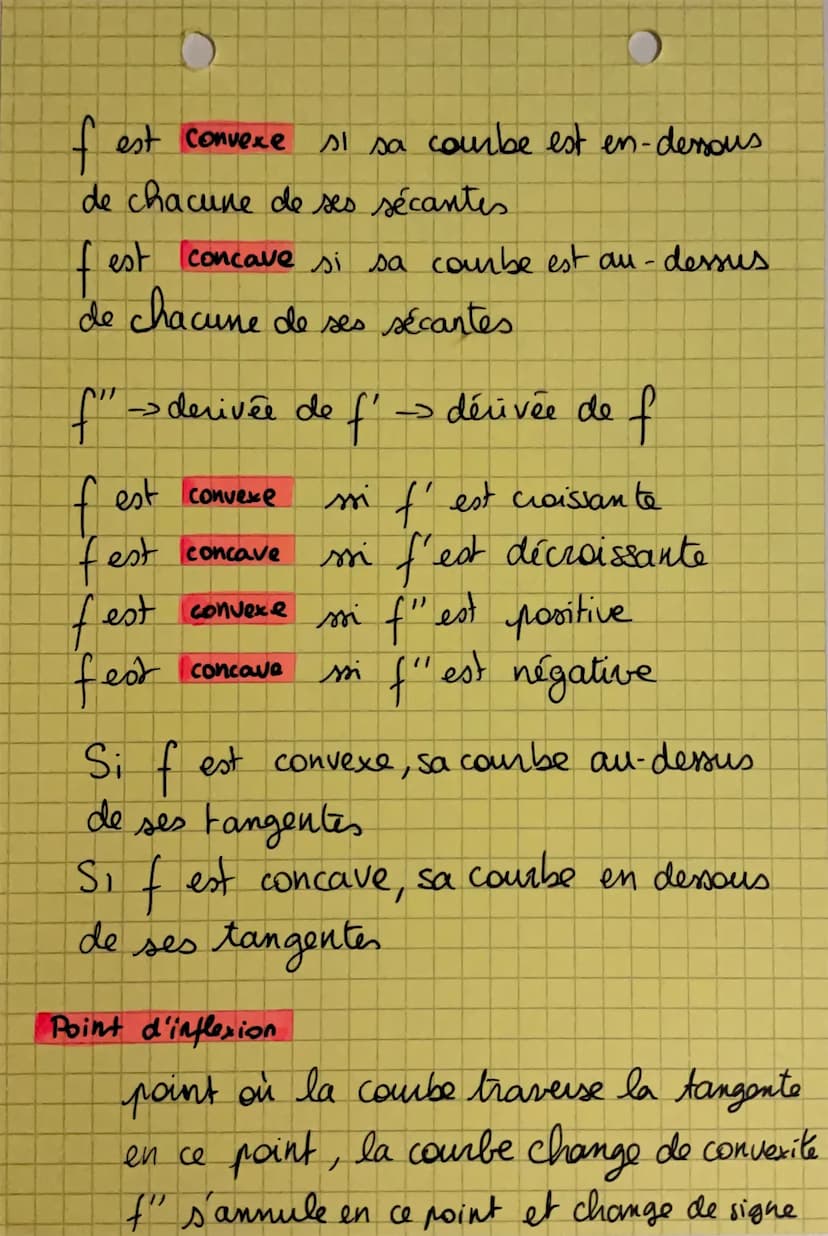 f est convexe si sa courbe est en-dessous
de chacune de ses sécantes
f est concave si sa courbe est au-dessus
de chacune de ses sécantes
f'' → derivée de f' → dérivée de f
f est convexe ssi f' est croissante
f est concave ssi f' est décroissante
f est convexe ssi f'' est positive
f est concave ssi f'' est négative
Si f est convexe, sa courbe au-dessus
de ses tangentes
Si f est concave, sa courbe en dessous
de ses tangentes
Point d'inflexion
point où la courbe traverse la tangente
en ce point, la courbe change de convexité
f'' s'annule en ce point et change de signe